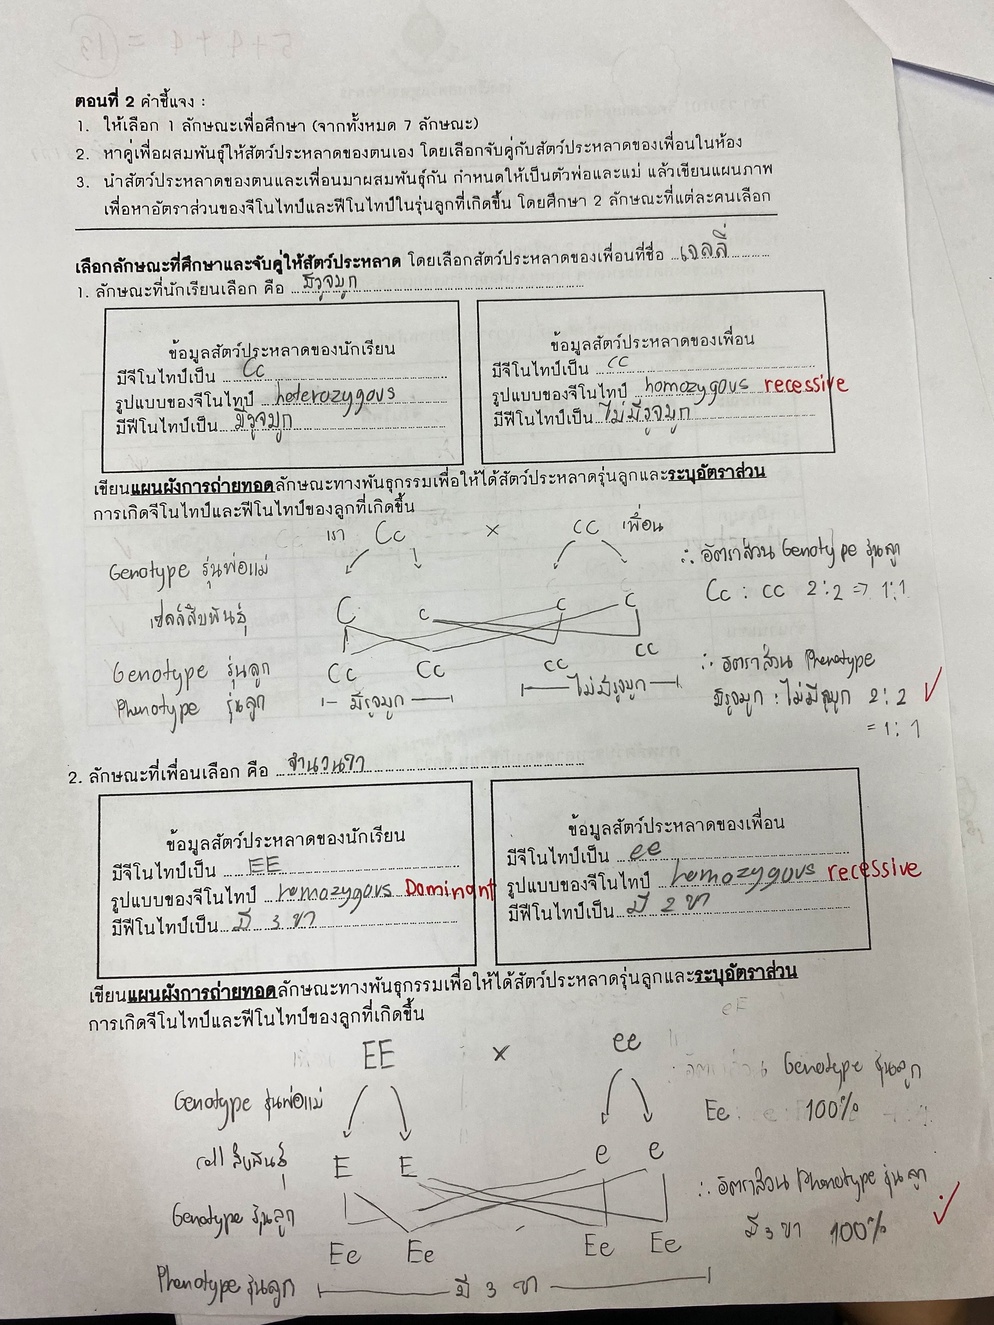 ตอนที่ 2 คำชี้แจง :
1. ให้เลือก 1 ลักษณะเพื่อศึกษา (จากทั้งหมด 7 ลักษณะ)
2. หาคู่เพื่อผสมพันธุ์ให้สัตว์ประหลาดของตนเอง โดยเลือกจับคู่กับสัตว์ประหลาดของเพื่อนในห้อง
3. นำสัตว์ประหลาดของตนและเพื่อนมาผสมพันธุ์กัน กำหนดให้เป็นตัวพ่อและแม่ แล้วเขียนแผนภาพ
เพื่อหาอัตราส่วนของจีโนไทป์และฟีโนไทป์ในรุ่นลูกที่เกิดขึ้น โดยศึกษา 2 ลักษณะที่แต่ละคนเลือก
เลือกลักษณะที่ศึกษาและจับคู่ให้สัตว์ประหลาด โดยเลือกสัตว์ประหลาดของเพื่อนที่ชื่อ เจลลี่
1. ลักษณะที่นักเรียนเลือก คือ มีรูจมูก
ข้อมูลสัตว์ประหลาดของนักเรียน
มีจีโนไทป์เป็น Cc
รูปแบบของจีโนไทป์ heterozygous
มีฟีโนไทป์เป็น มีรูจมูก
ข้อมูลสัตว์ประหลาดของเพื่อน
มีจีโนไทป์เป็น cc
รูปแบบของจีโนไทป์ homozygous recessive
มีฟีโนไทป์เป็น ไม่มีรูจมูก
เขียนแผนผังการถ่ายทอดลักษณะทางพันธุกรรมเพื่อให้ได้สัตว์ประหลาดรุ่นลูกและระบุอัตราส่วน
การเกิดจีโนไทป์และฟีโนไทป์ของลูกที่เกิดขึ้น
เรา Cc × cc เพื่อน
Genotype รุ่นพ่อแม่
∴ อัตราส่วน Genotype รุ่นลูก
Cc : cc 2:2 => 1:1
เซลล์สืบพันธุ์ C c c c
Genotype รุ่นลูก Cc Cc cc cc
∴ อัตราส่วน Phenotype
Phenotype รุ่นลูก มีรูจมูก ไม่มีรูจมูก
มีรูจมูก : ไม่มีรูจมูก 2:2
= 1:1
2. ลักษณะที่เพื่อนเลือก คือ จำนวนขา
ข้อมูลสัตว์ประหลาดของนักเรียน
มีจีโนไทป์เป็น EE
รูปแบบของจีโนไทป์ homozygous Dominant
มีฟีโนไทป์เป็น มี 3 ขา
ข้อมูลสัตว์ประหลาดของเพื่อน
มีจีโนไทป์เป็น ee
รูปแบบของจีโนไทป์ homozygous recessive
มีฟีโนไทป์เป็น มี 2 ขา
เขียนแผนผังการถ่ายทอดลักษณะทางพันธุกรรมเพื่อให้ได้สัตว์ประหลาดรุ่นลูกและระบุอัตราส่วน
การเกิดจีโนไทป์และฟีโนไทป์ของลูกที่เกิดขึ้น
EE × ee
Genotype รุ่นพ่อแม่
Genotype รุ่นลูก
Ee 100%
cell สืบพันธุ์ E E e e
∴ อัตราส่วน Phenotype รุ่นลูก
มี 3 ขา 100%
Genotype รุ่นลูก
Ee Ee Ee Ee
Phenotype รุ่นลูก มี 3 ขา